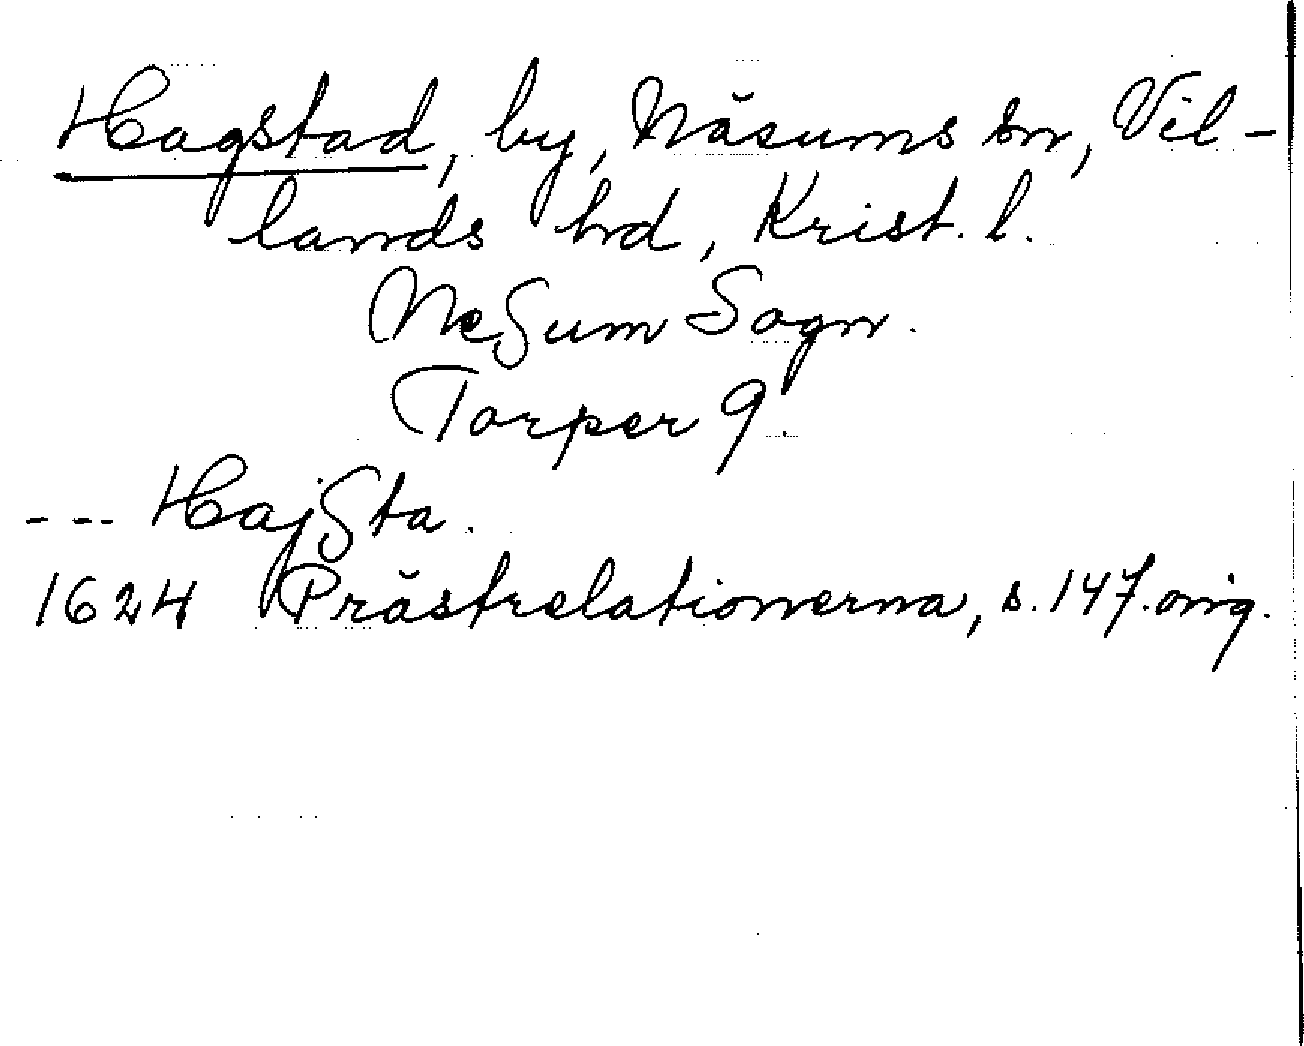 Hagstad, by, Näsums sn, Vil-
lands hd, Krist. l.
NeSum Sogn.
Torper 9.
--- HajSta.
1624 Prästrelationerna, s. 147. orig.